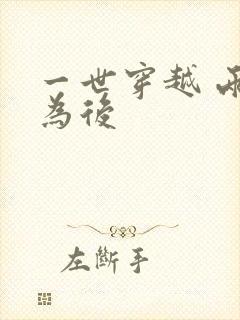 一世穿越
為後
左斷手